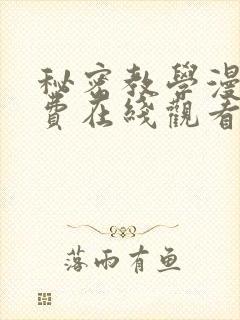 秘密教學漫
費在綫觀看
落雨有鱼